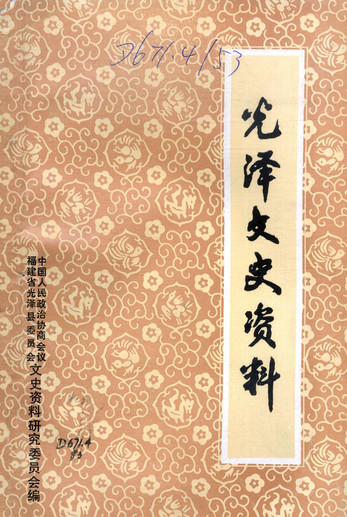 D671.4/53
光泽文史资料
中国人民政治协商会议
福建省光泽县委员会
文史资料研究委员会编
D671.4
53